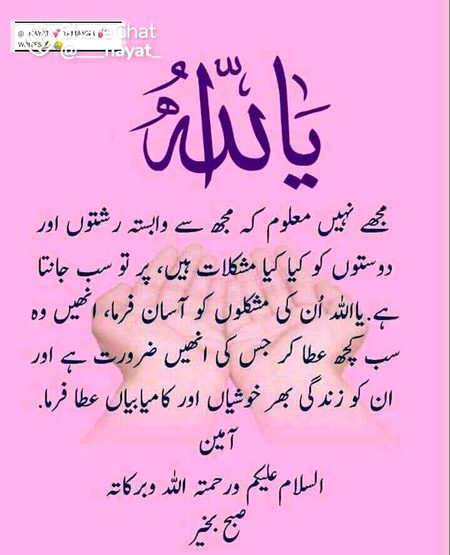 یا اللہ
مجھے نہیں معلوم کہ مجھ سے وابستہ رشتوں اور
دوستوں کو کیا کیا مشکلات ہیں، پر تو سب جانتا
ہے. یااللہ اُن کی مشکلوں کو آسان فرما، انھیں وہ
سب کچھ عطا کر جس کی انھیں ضرورت ہے اور
ان کو زندگی بھر خوشیاں اور کامیابیاں عطا فرما.
آمین
السلام علیکم ورحمتہ اللہ وبرکاتہ
صبح بخیر